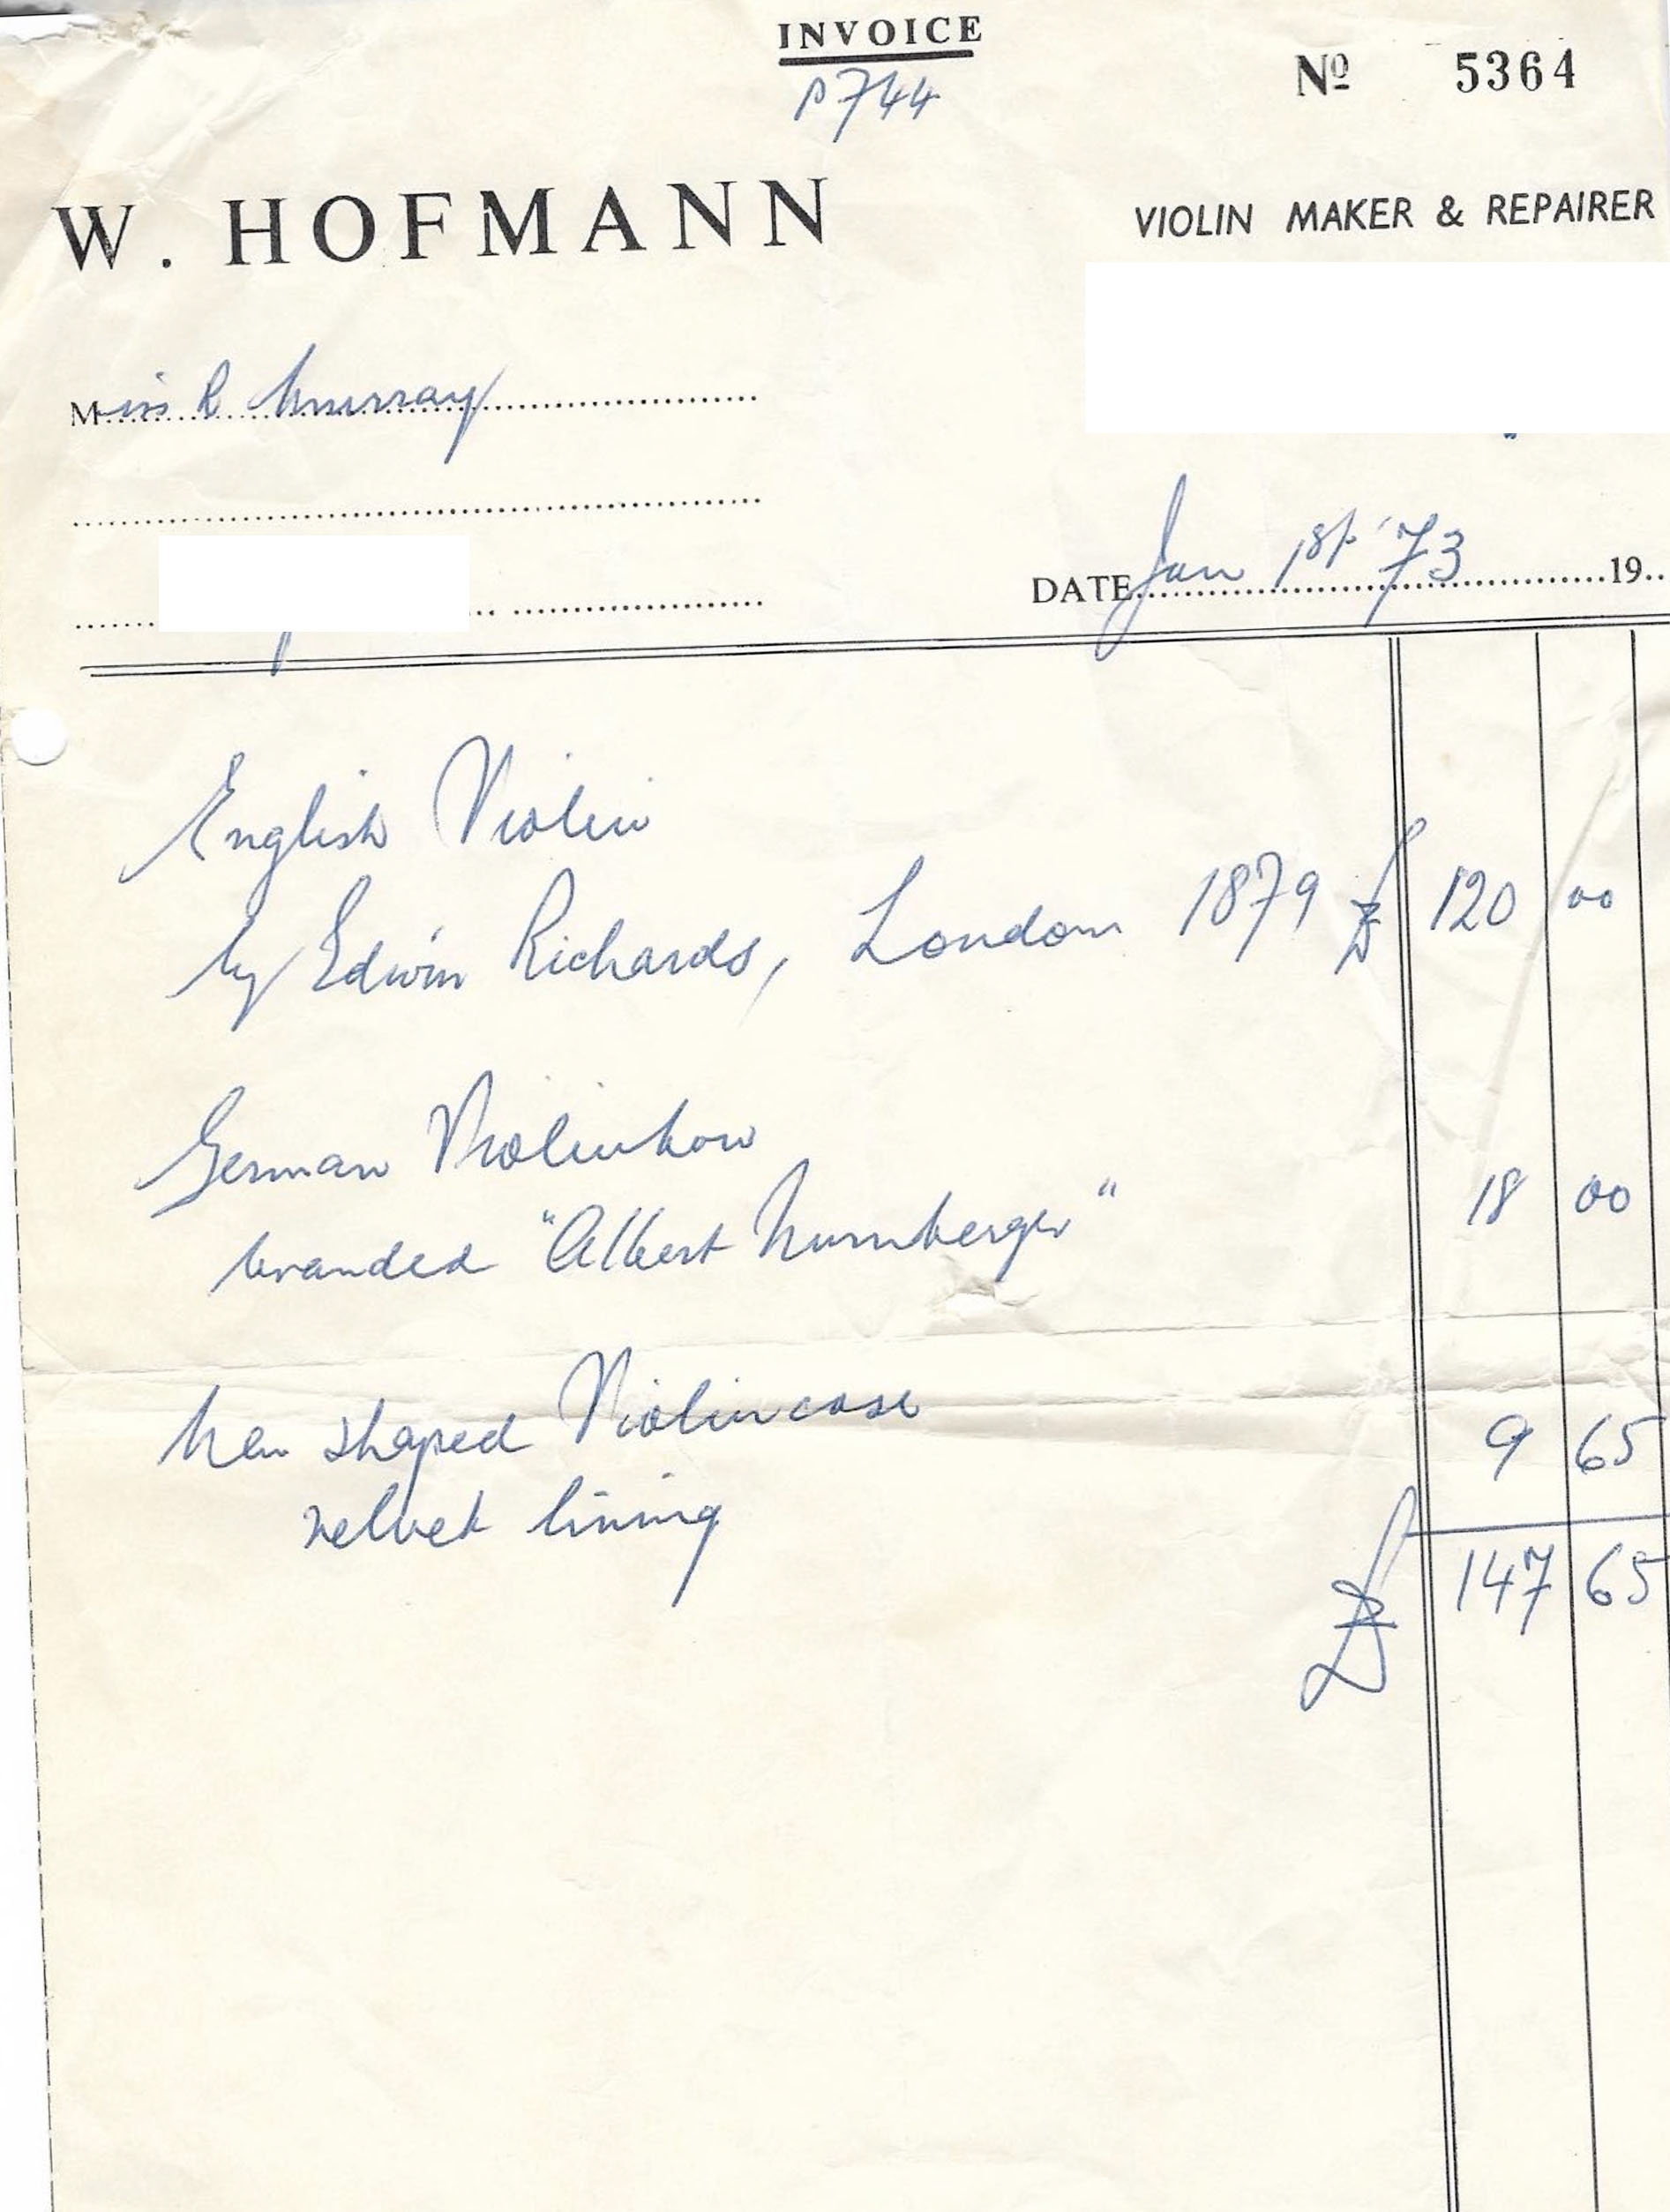 INVOICE
p744
Nº 5364
W. HOFMANN
VIOLIN MAKER & REPAIRER
Miss R Murray
DATE Jan 1st '73 19..
English Violin
by Edwin Richards, London 1879 £ 120 00
German Violinbow
branded "Albert Nurnberger" 18 00
New shaped Violincase 9 65
velvet lining
£ 147 65